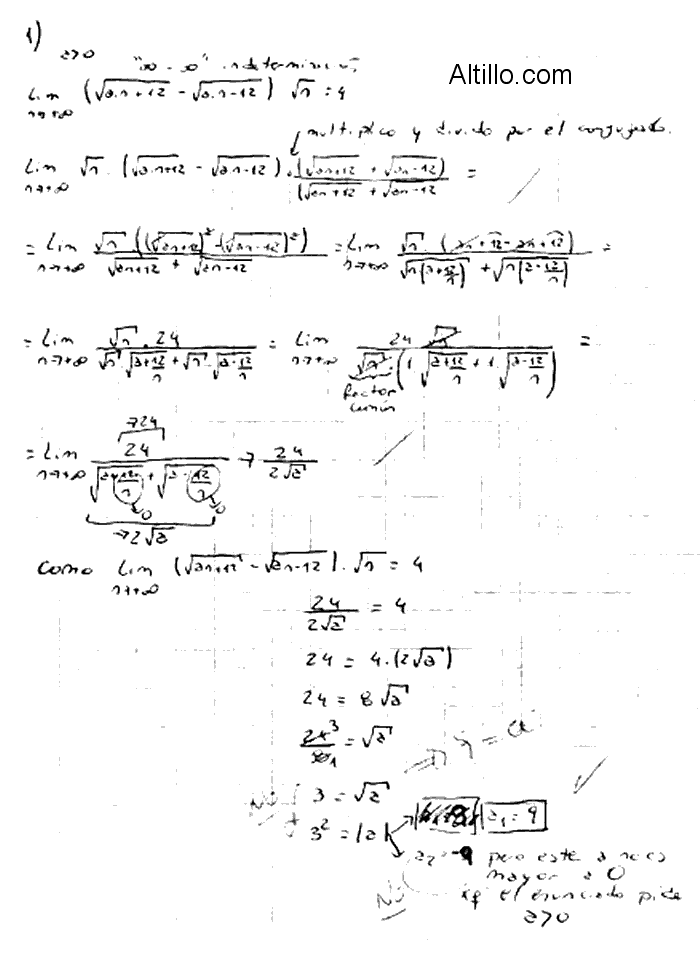 1)
a>0
"∞ - ∞" indeterminación
Altillo.com
Lim n→+∞ (√(an+12) - √(an-12)) √n = 4
multiplico y divido por el conjugado.
Lim n→+∞ √n . (√(an+12) - √(an-12)) . (√(an+12) + √(an-12)) / (√(an+12) + √(an-12)) =
= Lim n→+∞ √n ((√(an+12))² - (√(an-12))²) / (√(an+12) + √(an-12)) = Lim n→+∞ √n . (an+12-an+12) / (√(n(a+12/n)) + √(n(a-12/n))) =
= Lim n→+∞ √n . 24 / (√n . √(a+12/n) + √n . √(a-12/n)) = Lim n→+∞ 24 √n / (√n . (1 . √(a+12/n) + 1 . √(a-12/n))) =
Factor común
→24
= Lim n→+∞ 24 / (√(a+12/n) + √(a-12/n)) → 24 / (2√a)
→0 →0
→2√a
Como Lim n→+∞ (√(an+12) - √(an-12)) . √n = 4
24 / (2√a) = 4
24 = 4.(2√a)
24 = 8√a
24 3 / 8 1 = √a
3 = √a
3² = |a| a₁ = 9
a₂ = -9 pero este a no es
mayor a 0
el enunciado pide
a>0
NO